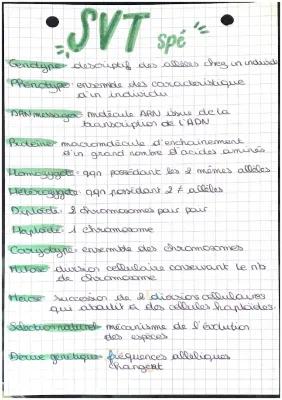 SVT spé
Genotype: descriptif des allèles chez un individu
Phenotype: ensemble des caractéristique
d'un individu
ARN messager: molécule ARN issue de la
transcription de l'ADN
Proteine: macromolécule d'enchainement
d'un grand nombre d'acides aminés
Homozygote: qqn possédant les 2 mêmes allèles
Heterozygote: qqn possédant 2 ≠ allèles
Diploïde: 2 chromosomes par pair
Haploïde: 1 chromosome
Caryotype: ensemble des chromosomes
Mitose: division cellulaire conservant le nb
de chromosome
Meiose: succession de 2 divisions cellulaires
qui aboutit à des cellules haploïdes.
Sélection naturel: mécanisme de l'évolution
des espèces
Derive genetique: fréquences alléliques
changent